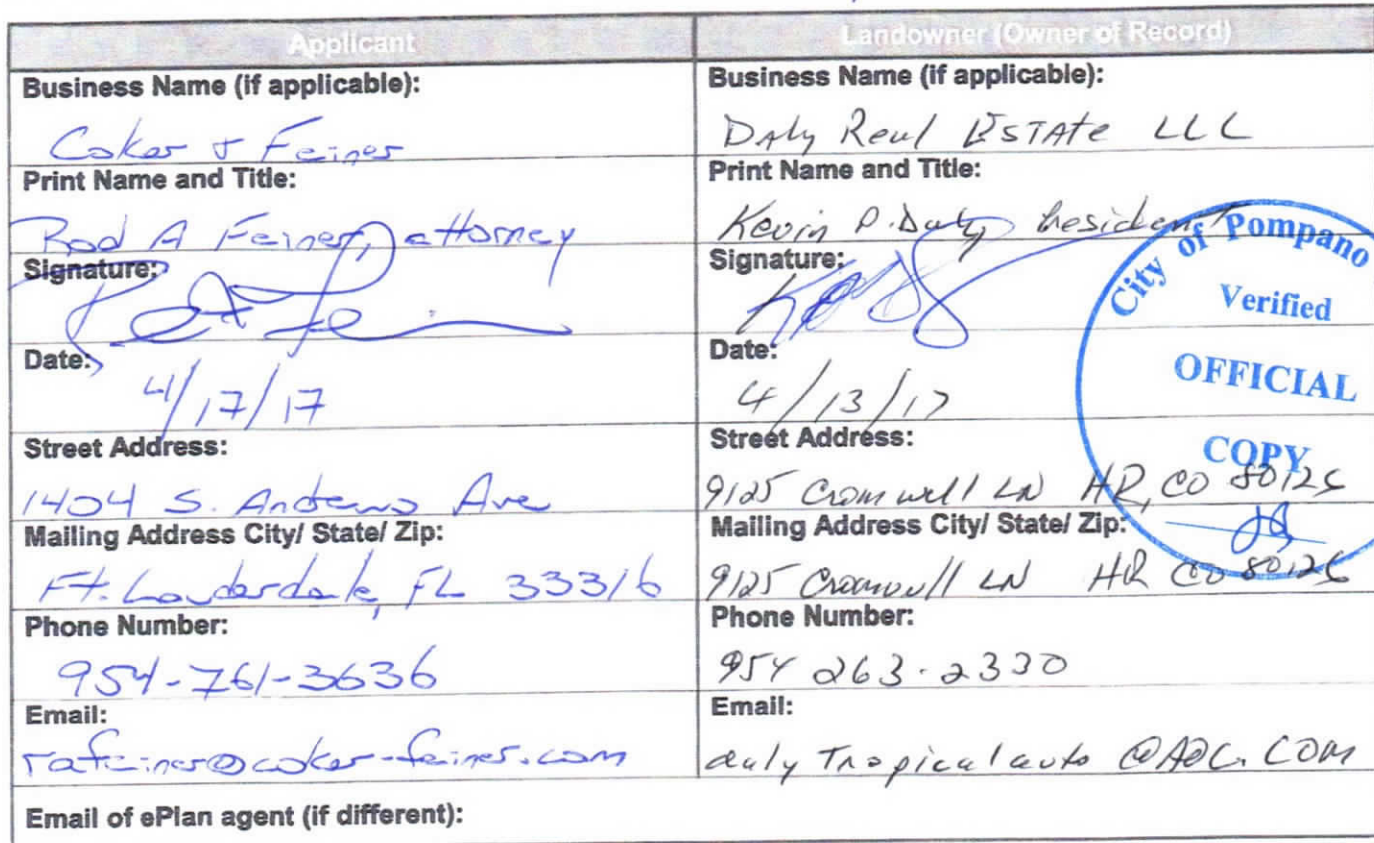 Applicant
Landowner (Owner of Record)
Business Name (if applicable):
Coker & Feiner
Business Name (if applicable):
Daly Real Estate LLC
Print Name and Title:
Rod A Feiner, attorney
Print Name and Title:
Kevin P. Daly, President
Signature:
Signature:
Date:
4/17/17
Date:
4/13/17
Street Address:
1404 S. Andrews Ave
Street Address:
9125 Cromwell LN HR, CO 80126
Mailing Address City/ State/ Zip:
Ft. Lauderdale, FL 33316
Mailing Address City/ State/ Zip:
9125 Cromwell LN HR CO 80126
Phone Number:
954-761-3636
Phone Number:
954 263-2330
Email:
rafeiner@coker-feiner.com
Email:
daly Tropicalauto @AOL.COM
Email of ePlan agent (if different):
City of Pompano
Verified
OFFICIAL
COPY